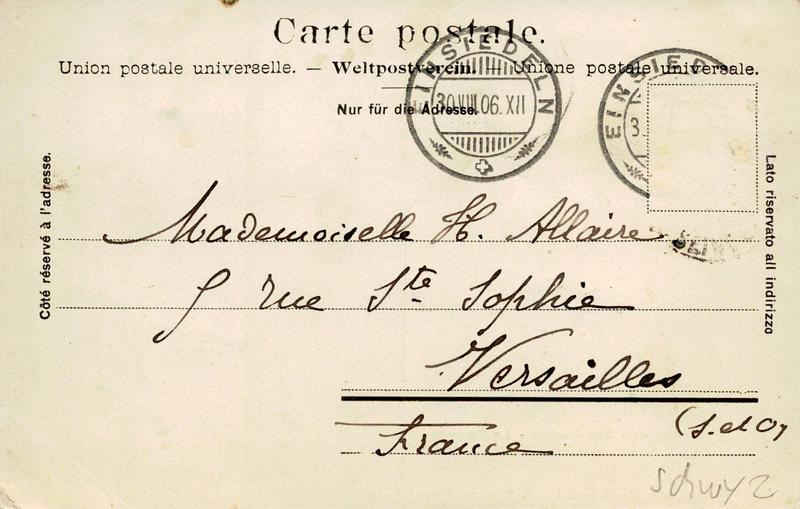 Carte postale.
Union postale universelle. — Weltpostverein. — Unione postale universale.
Nur für die Adresse.
EINSIEDELN
30.VIII.06.XII
EINSIED
3.
Côté réservé à l'adresse.
Lato riservato all indirizzo
Mademoiselle H. Allaire
9 rue Ste Sophie
Versailles
(S. et O)
France
Schwyz